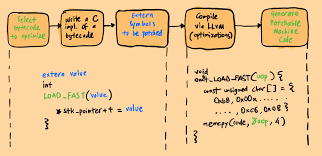 Select
bytecode
to optimize
Write a C
impl. of a
bytecode
Extern
Symbols
to be patched
Compile
via LLVM
(optimizations)
Generate
Patchable
Machine
Code
extern value
int
LOAD_FAST(value)
{
*stk_pointer++ = value
}
void
emit_LOAD_FAST(uop) {
const unsigned char[] = {
0x68, 0x00
, 0xC6, 0x08 }
memcpy(code, &oop, 4)
}